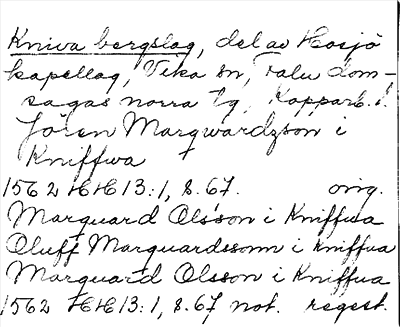 Kniva bergslag, del av Hosjö
kapellag, Vika sn, Falu dom-
sagas norra tg, Kopparb. l.
Jören Marqwardzson i
Kniffwa
1562 HH 13:1, s. 67. orig.
Marquard Olsson i Kniffwa
Oluff Marquardssonn i Kniffwa
Marquard Olsson i Kniffwa
1562 HH 13:1, s. 67 not. regest.